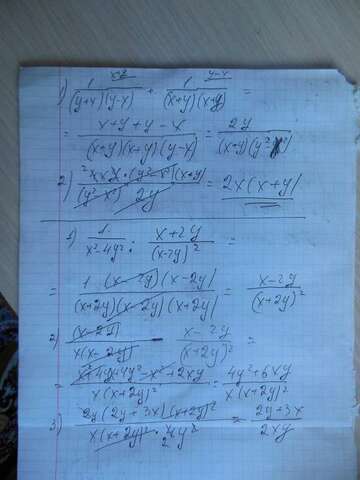 1) 1/((y+x)(y-x)) + 1/((x+y)(x+y)) =
= (x+y+y-x)/((x+y)(x+y)(y-x)) = 2y/((x+y)(y²-x²))
2) (4xy · (y²-x²)(x+y))/((y²-x²) 2y) = 2x(x+y)
1) 1/(x²-4y²) : (x+2y)/(x-2y)² =
= (1·(x-2y)(x-2y))/((x+2y)(x-2y)(x+2y)) = (x-2y)/(x+2y)²
2) (x-2y)/(x(x-2y)) - (x-2y)/(x+2y)² =
= (x²+4y+4y²-x²+2xy)/(x(x+2y)²) = (4y²+6xy)/(x(x+2y)²)
3) (2y(2y+3x)(x+2y)²)/(x(x+2y)² · 4y²) = (2y+3x)/(2xy)